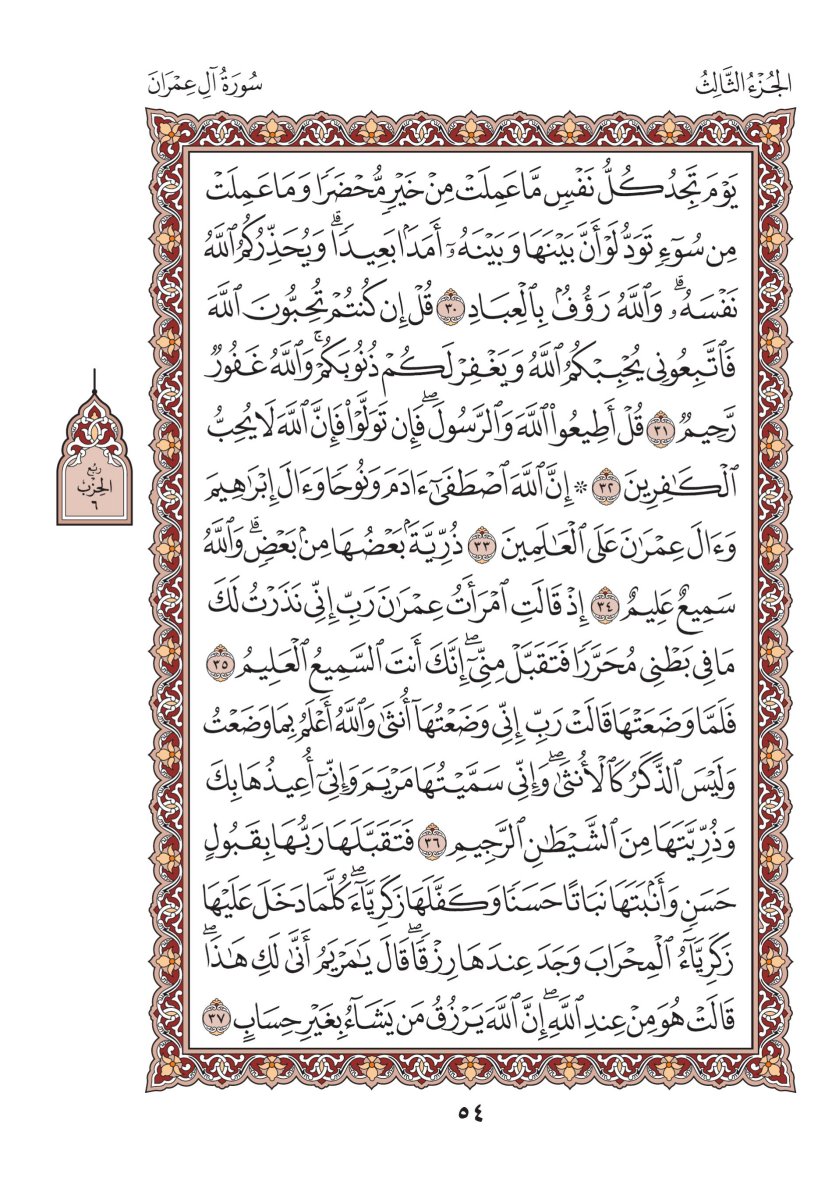 الجُزْءُ الثَّالِثُ
سُورَةُ آلِ عِمْرَانَ
يَوْمَ تَجِدُ كُلُّ نَفْسٖ مَّا عَمِلَتْ مِنْ خَيْرٖ مُّحْضَرٗا وَمَا عَمِلَتْ
مِن سُوٓءٖ تَوَدُّ لَوْ أَنَّ بَيْنَهَا وَبَيْنَهُۥٓ أَمَدَۢا بَعِيدٗاۗ وَيُحَذِّرُكُمُ ٱللَّهُ
نَفْسَهُۥۗ وَٱللَّهُ رَءُوفُۢ بِٱلْعِبَادِ ٣٠ قُلْ إِن كُنتُمْ تُحِبُّونَ ٱللَّهَ
فَٱتَّبِعُونِي يُحْبِبْكُمُ ٱللَّهُ وَيَغْفِرْ لَكُمْ ذُنُوبَكُمْۚ وَٱللَّهُ غَفُورٞ
رَّحِيمٞ ٣١ قُلْ أَطِيعُواْ ٱللَّهَ وَٱلرَّسُولَۖ فَإِن تَوَلَّوْاْ فَإِنَّ ٱللَّهَ لَا يُحِبُّ
ٱلْكَٰفِرِينَ ٣٢ ۞ إِنَّ ٱللَّهَ ٱصْطَفَىٰٓ ءَادَمَ وَنُوحٗا وَءَالَ إِبْرَٰهِيمَ
وَءَالَ عِمْرَٰنَ عَلَى ٱلْعَٰلَمِينَ ٣٣ ذُرِّيَّةَۢ بَعْضُهَا مِنۢ بَعْضٖۗ وَٱللَّهُ
سَمِيعٌ عَلِيمٌ ٣٤ إِذْ قَالَتِ ٱمْرَأَتُ عِمْرَٰنَ رَبِّ إِنِّي نَذَرْتُ لَكَ
مَا فِي بَطْنِي مُحَرَّرٗا فَتَقَبَّلْ مِنِّيٓۖ إِنَّكَ أَنتَ ٱلسَّمِيعُ ٱلْعَلِيمُ ٣٥
فَلَمَّا وَضَعَتْهَا قَالَتْ رَبِّ إِنِّي وَضَعْتُهَآ أُنثَىٰ وَٱللَّهُ أَعْلَمُ بِمَا وَضَعَتْ
وَلَيْسَ ٱلذَّكَرُ كَٱلْأُنثَىٰۖ وَإِنِّي سَمَّيْتُهَا مَرْيَمَ وَإِنِّيٓ أُعِيذُهَا بِكَ
وَذُرِّيَّتَهَا مِنَ ٱلشَّيْطَٰنِ ٱلرَّجِيمِ ٣٦ فَتَقَبَّلَهَا رَبُّهَا بِقَبُولٍ
حَسَنٖ وَأَنۢبَتَهَا نَبَاتًا حَسَنٗا وَكَفَّلَهَا زَكَرِيَّآءُۖ كُلَّمَا دَخَلَ عَلَيْهَا
زَكَرِيَّآءُ ٱلْمِحْرَابَ وَجَدَ عِندَهَا رِزْقٗاۖ قَالَ يَٰمَرْيَمُ أَنَّىٰ لَكِ هَٰذَاۖ
قَالَتْ هُوَ مِنْ عِندِ ٱللَّهِۖ إِنَّ ٱللَّهَ يَرْزُقُ مَن يَشَآءُ بِغَيْرِ حِسَابٍ ٣٧
رُبْع
الحِزْب
٦
٥٤